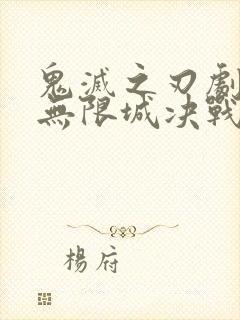 鬼滅之刃劇
無限城決戰
楊府